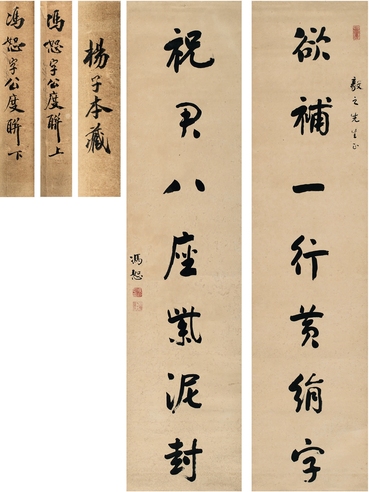 欲補一行黃絹字
毅之先生正
祝君八座紫泥封
馮恕
楊子本藏
馮恕字公度聯上
馮恕字公度聯下